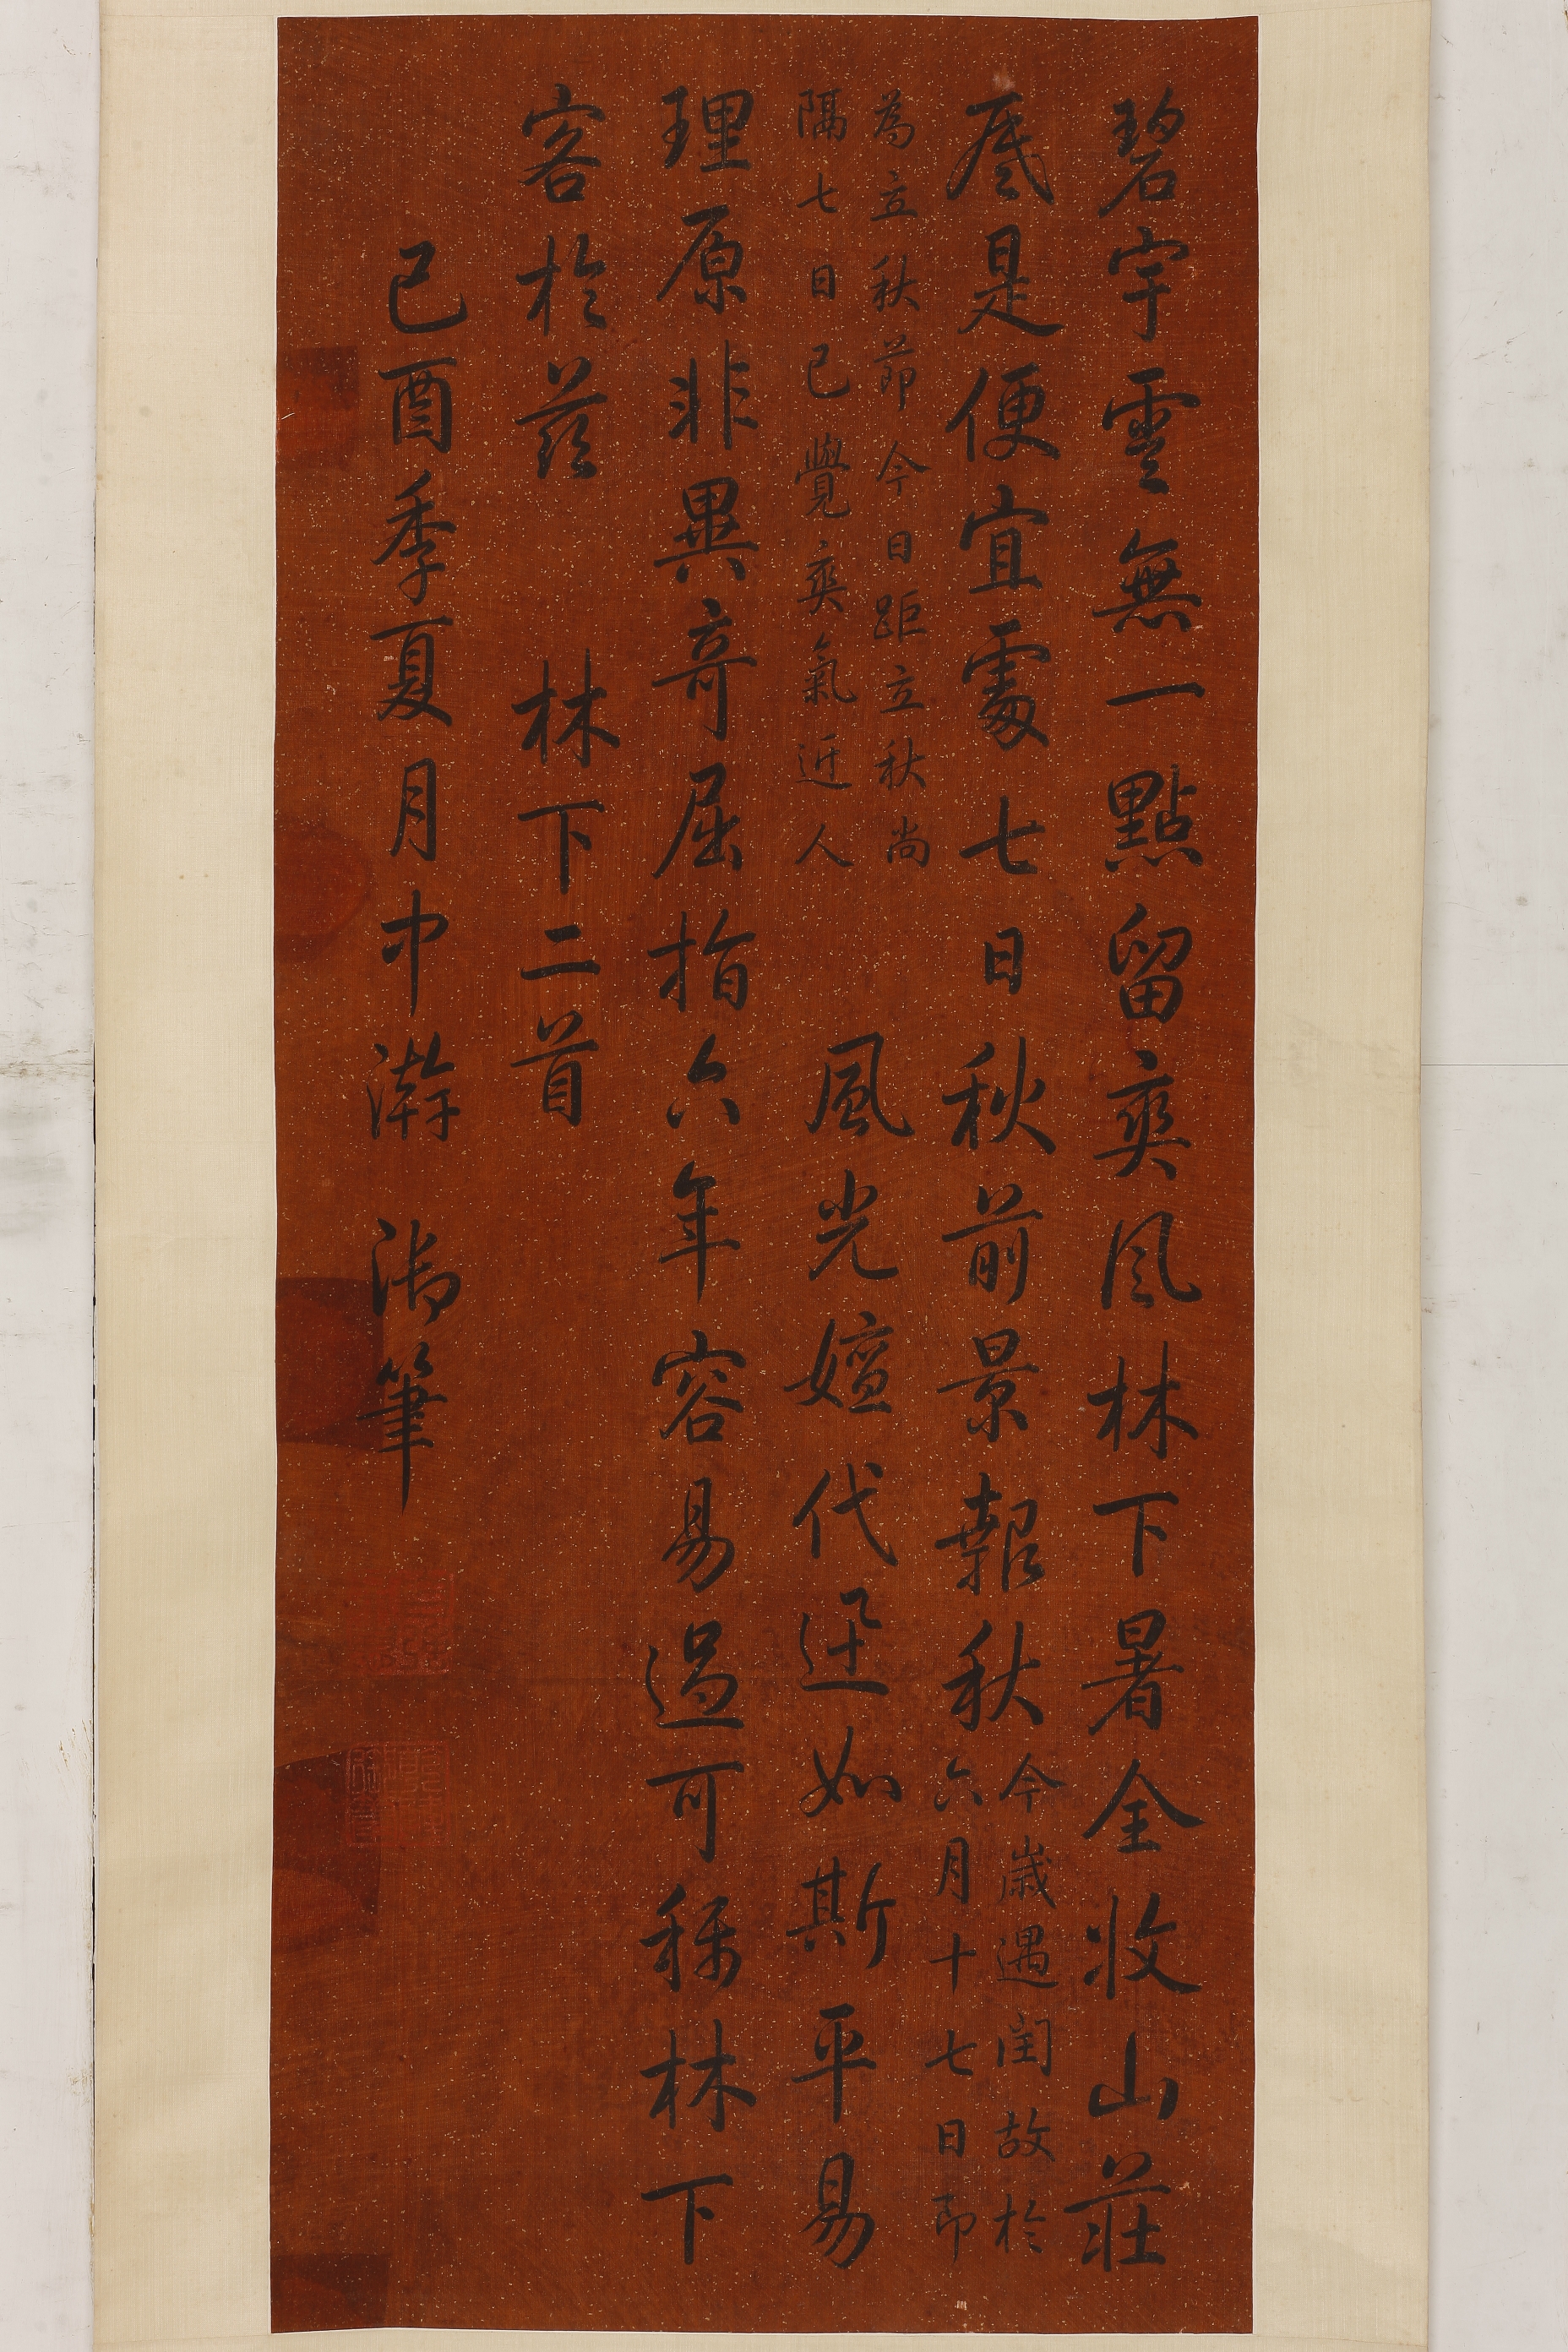 碧宇雲無一點留爽風林下暑全收山莊
底是便宜處七日秋前景報秋
今歲遇閏故於
六月十七日即
為立秋節今日距立秋尚
隔七日已覺爽氣近人
風光嬗代迅如斯平易
理原非異奇屈指六年容易過可稱林下
客於茲　林下二首
己酉季夏月中澣　御筆